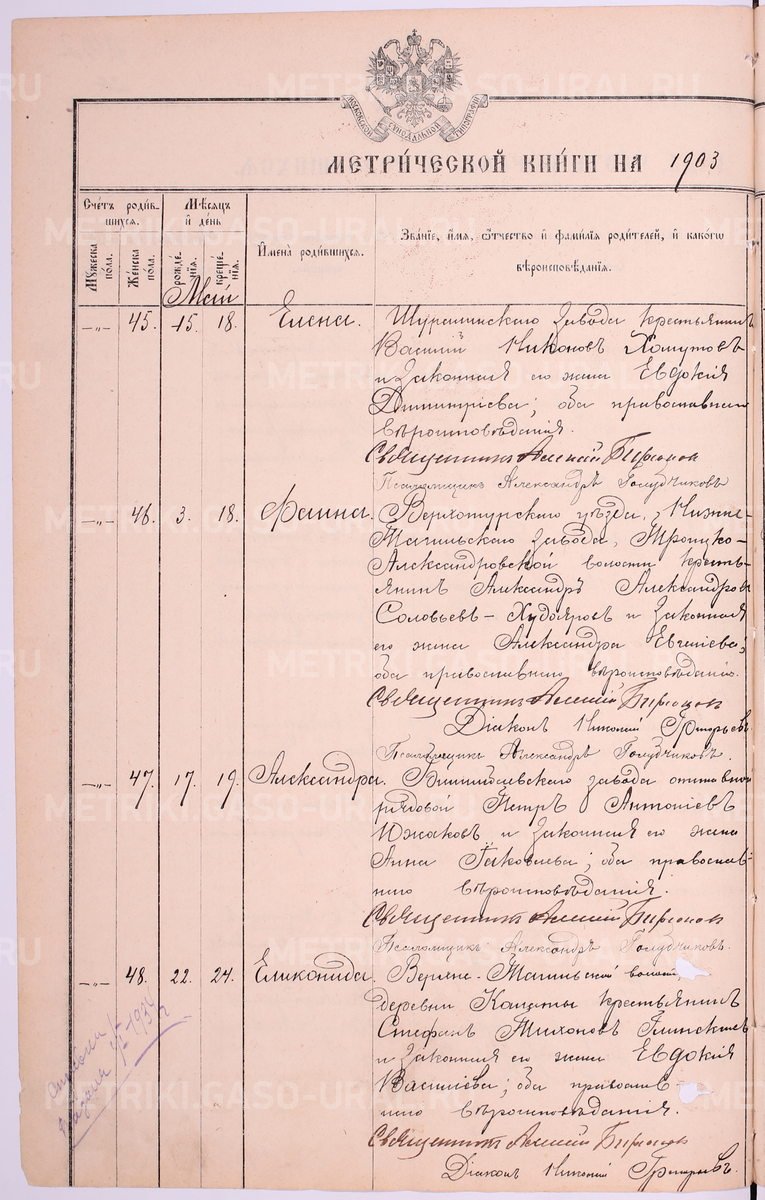 МОСКОВСКОЙ СѴНОДАЛЬНОЙ ТИПОГРАФІИ
МЕТРИ́ЧЕСКОЙ КНИ́ГИ НА 1903
Счетъ роди́вшихся.
Мѣсяцъ и҆ де́нь
И҆мена̀ роди́вшихся.
Зва́нїе, и҆́мя, ѻ҆́тчество и҆ фами́лїя роди́телей, и҆ како́гѡ вѣроисповѣ́данїя.
Му́жеска по́ла.
Же́нска по́ла.
рожде́нїя.
креще́нїя.
Май
—„— 45. 15. 18. Елена. Шуралинскаго завода крестьянинъ
Василій Никоновъ Хомутовъ
и законная его жена Евдокія
Димитріева; оба православнаго
вѣроисповѣданія.
Священникъ Алексій Бирюков
Псаломщикъ Александръ Голубчиковъ
—„— 46. 3. 18. Фаина. Верхотурскаго уѣзда, Нижне-
Тагильскаго завода, Троицко-
Александровской волости кресть-
янинъ Александръ Александров
Соловьевъ-Худояровъ и законная
его жена Александра Евгеніева;
оба православнаго вѣроисповѣданія.
Священникъ Алексій Бирюков
Діаконъ Николай Григорьевъ
Псаломщикъ Александръ Голубчиковъ.
—„— 47. 17. 19. Александра. Билимбаевскаго завода отставной
рядовой Петръ Антоніевъ
и законная его жена
Анна Іаковлева; оба православ-
наго вѣроисповѣданія.
Священникъ Алексій Бирюков
Псаломщикъ Александръ Голубчиковъ.
—„— 48. 22. 24. Еликонида. Верхне-Тагильской волости,
деревни крестьянинъ
Стефанъ Тихоновъ Глинскихъ
и законная его жена Евдокія
Василіева; оба православ-
наго вѣроисповѣданія.
Священникъ Алексій Бирюков
Діаконъ Николай Григорьевъ.
METRIKI.GASO-URAL.RU